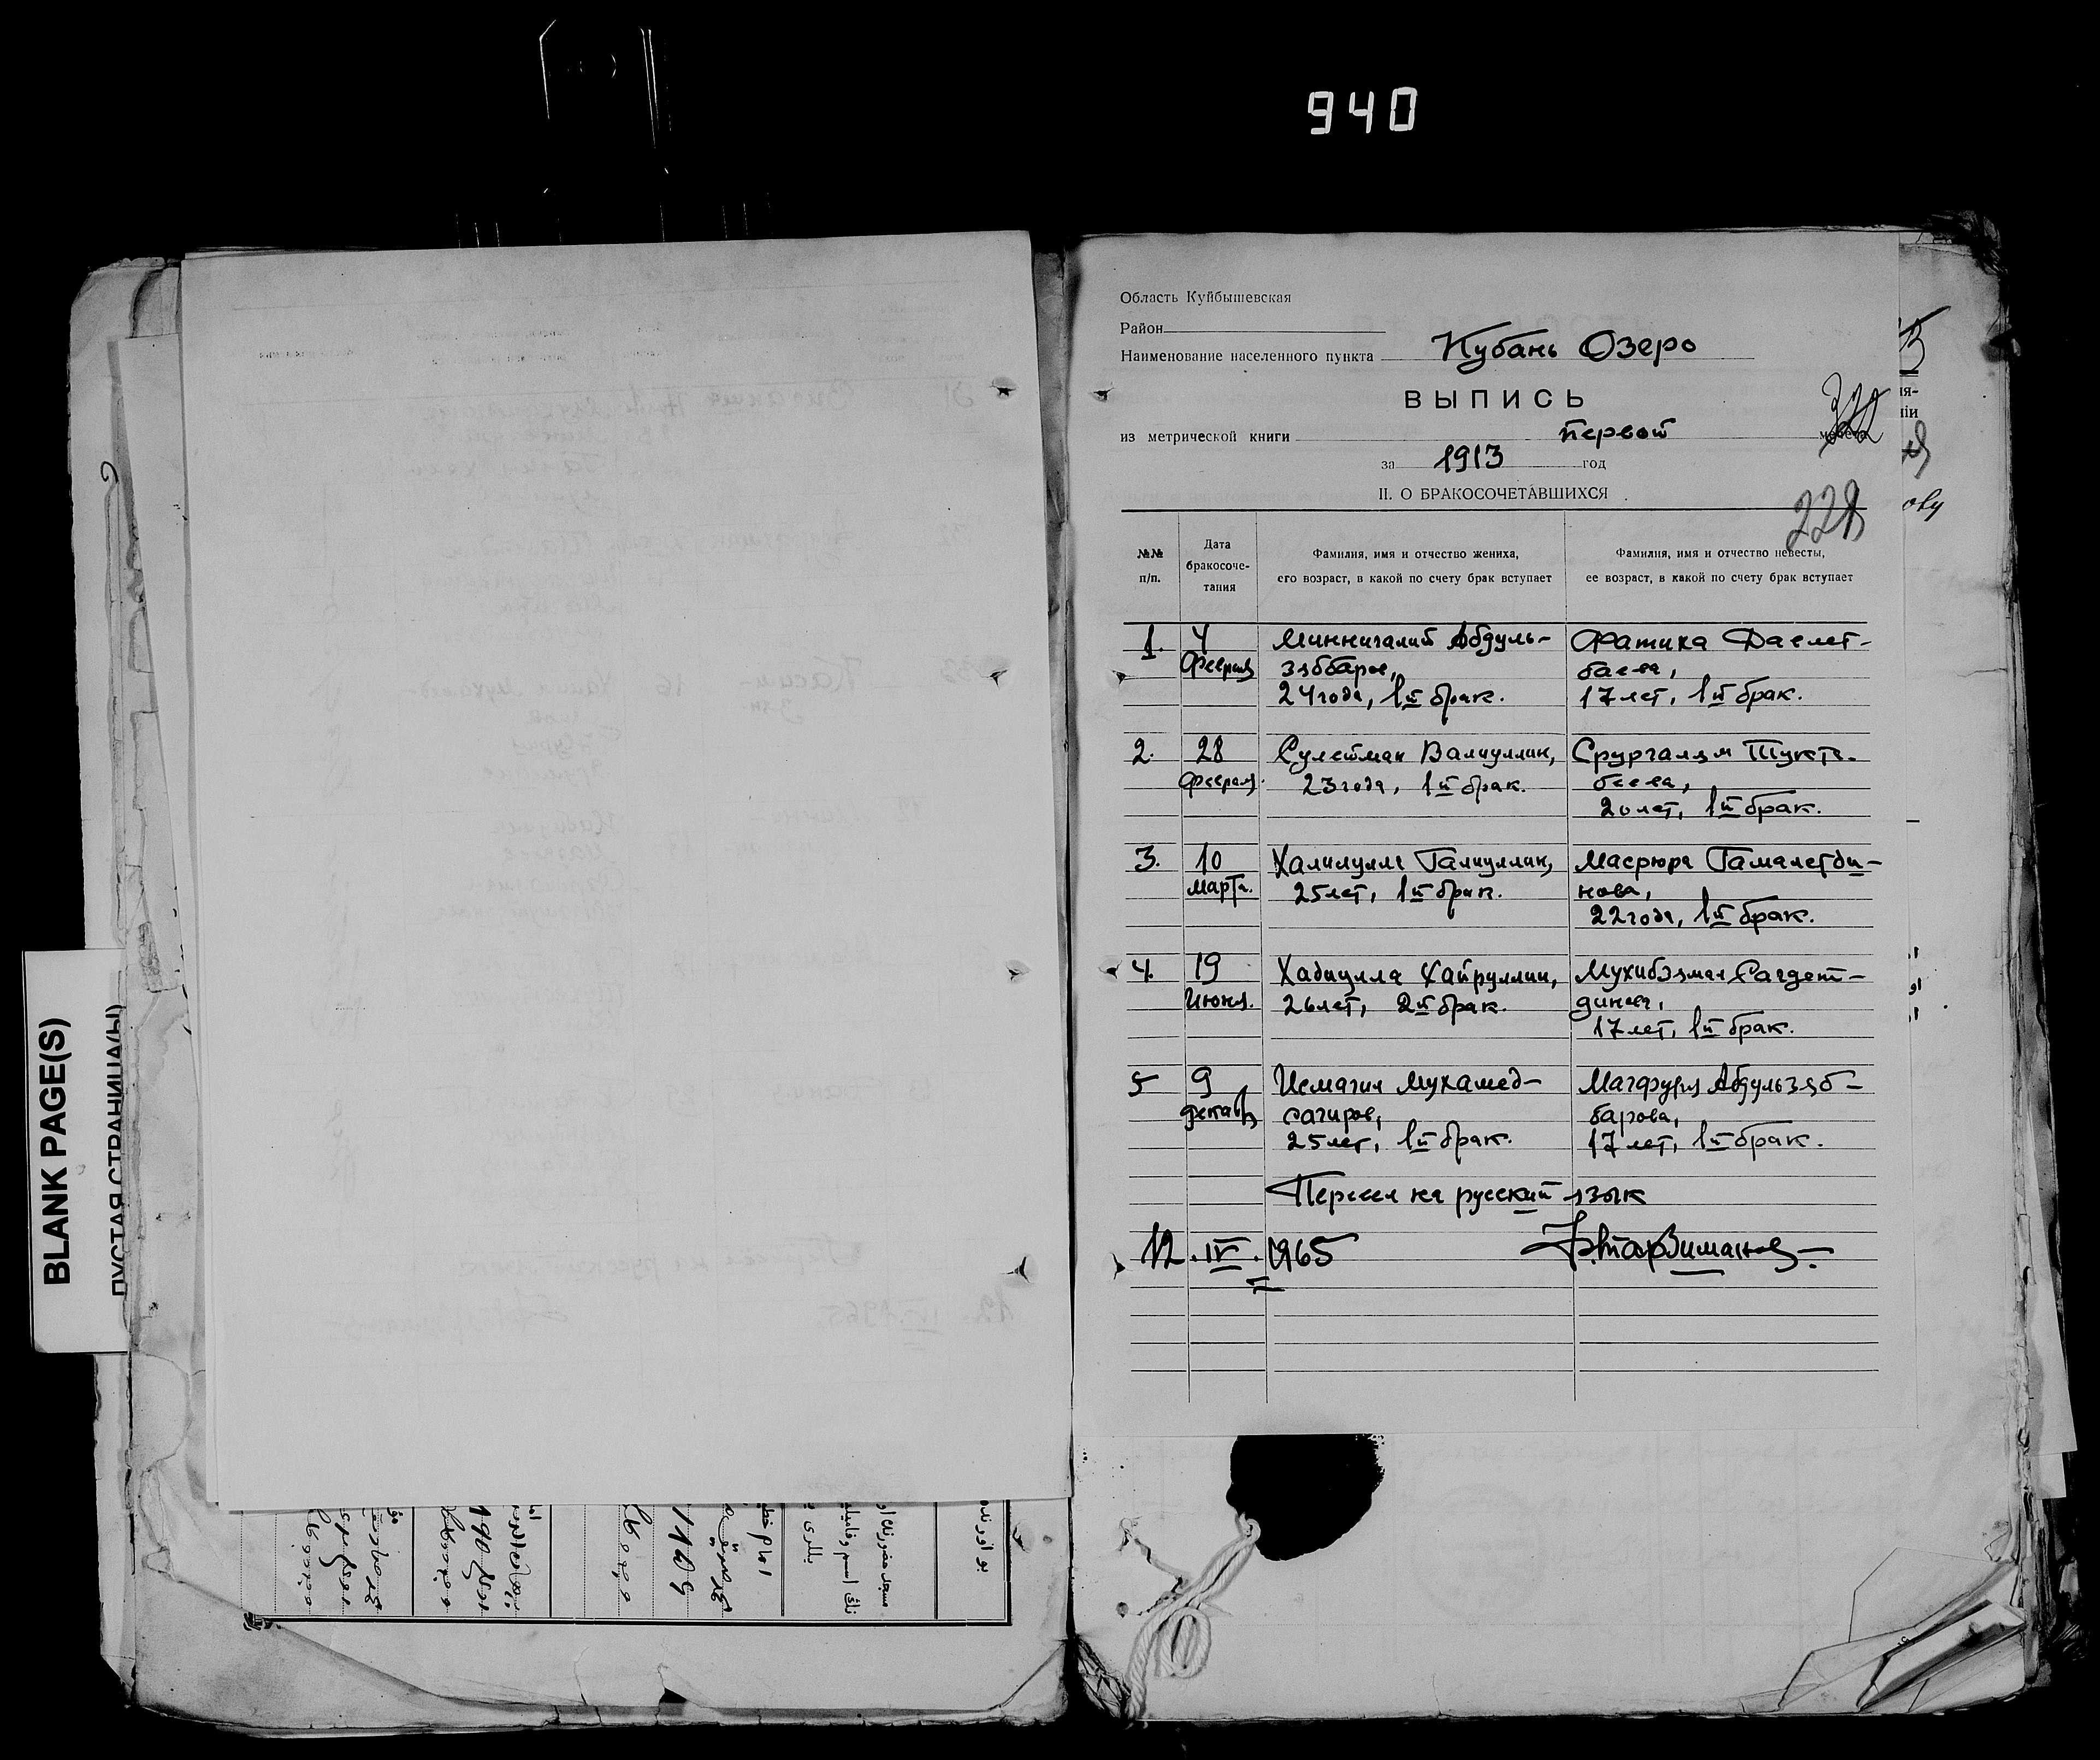 940
BLANK PAGE(S)
ПУСТАЯ СТРАНИЦА(Ы)
Область Куйбышевская
Район
Наименование населенного пункта Кубань Озеро
ВЫПИСЬ
из метрической книги первой мечети
322
за 1913 год
II. О БРАКОСОЧЕТАВШИХСЯ
228
№№ п/п.
Дата бракосоче-тания
Фамилия, имя и отчество жениха,
его возраст, в какой по счету брак вступает
Фамилия, имя и отчество невесты,
ее возраст, в какой по счету брак вступает
1. 4 Миннигалий Абдуль- Фатиха Давлет-
февраля зяббаров, баева,
24 года, 1й брак. 17 лет, 1й брак.
2. 28 Сулейман Валиуллин, Тукта-
февраля. 23 года, 1й брак. баева,
20 лет, 1й брак.
3. 10 Халилулла Галиуллин, Масрюра Гамалетди-
марта. 25 лет, 1й брак. нова,
22 года, 1й брак.
4. 19 Хадиулла Хайруллин, Мухибзямал Сагдет-
июня. 26 лет, 2й брак. динова,
17 лет, 1й брак.
5 9 Исмагил Мухамед- Магфуря Абдульзяб-
декабр сагиров, барова,
25 лет, 1й брак. 17 лет, 1й брак.
Перевел на русский язык
12.IV.1965